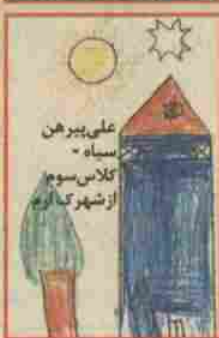 علی پیرهن
سیاه -
کلاس سوم
از شهرک آرم